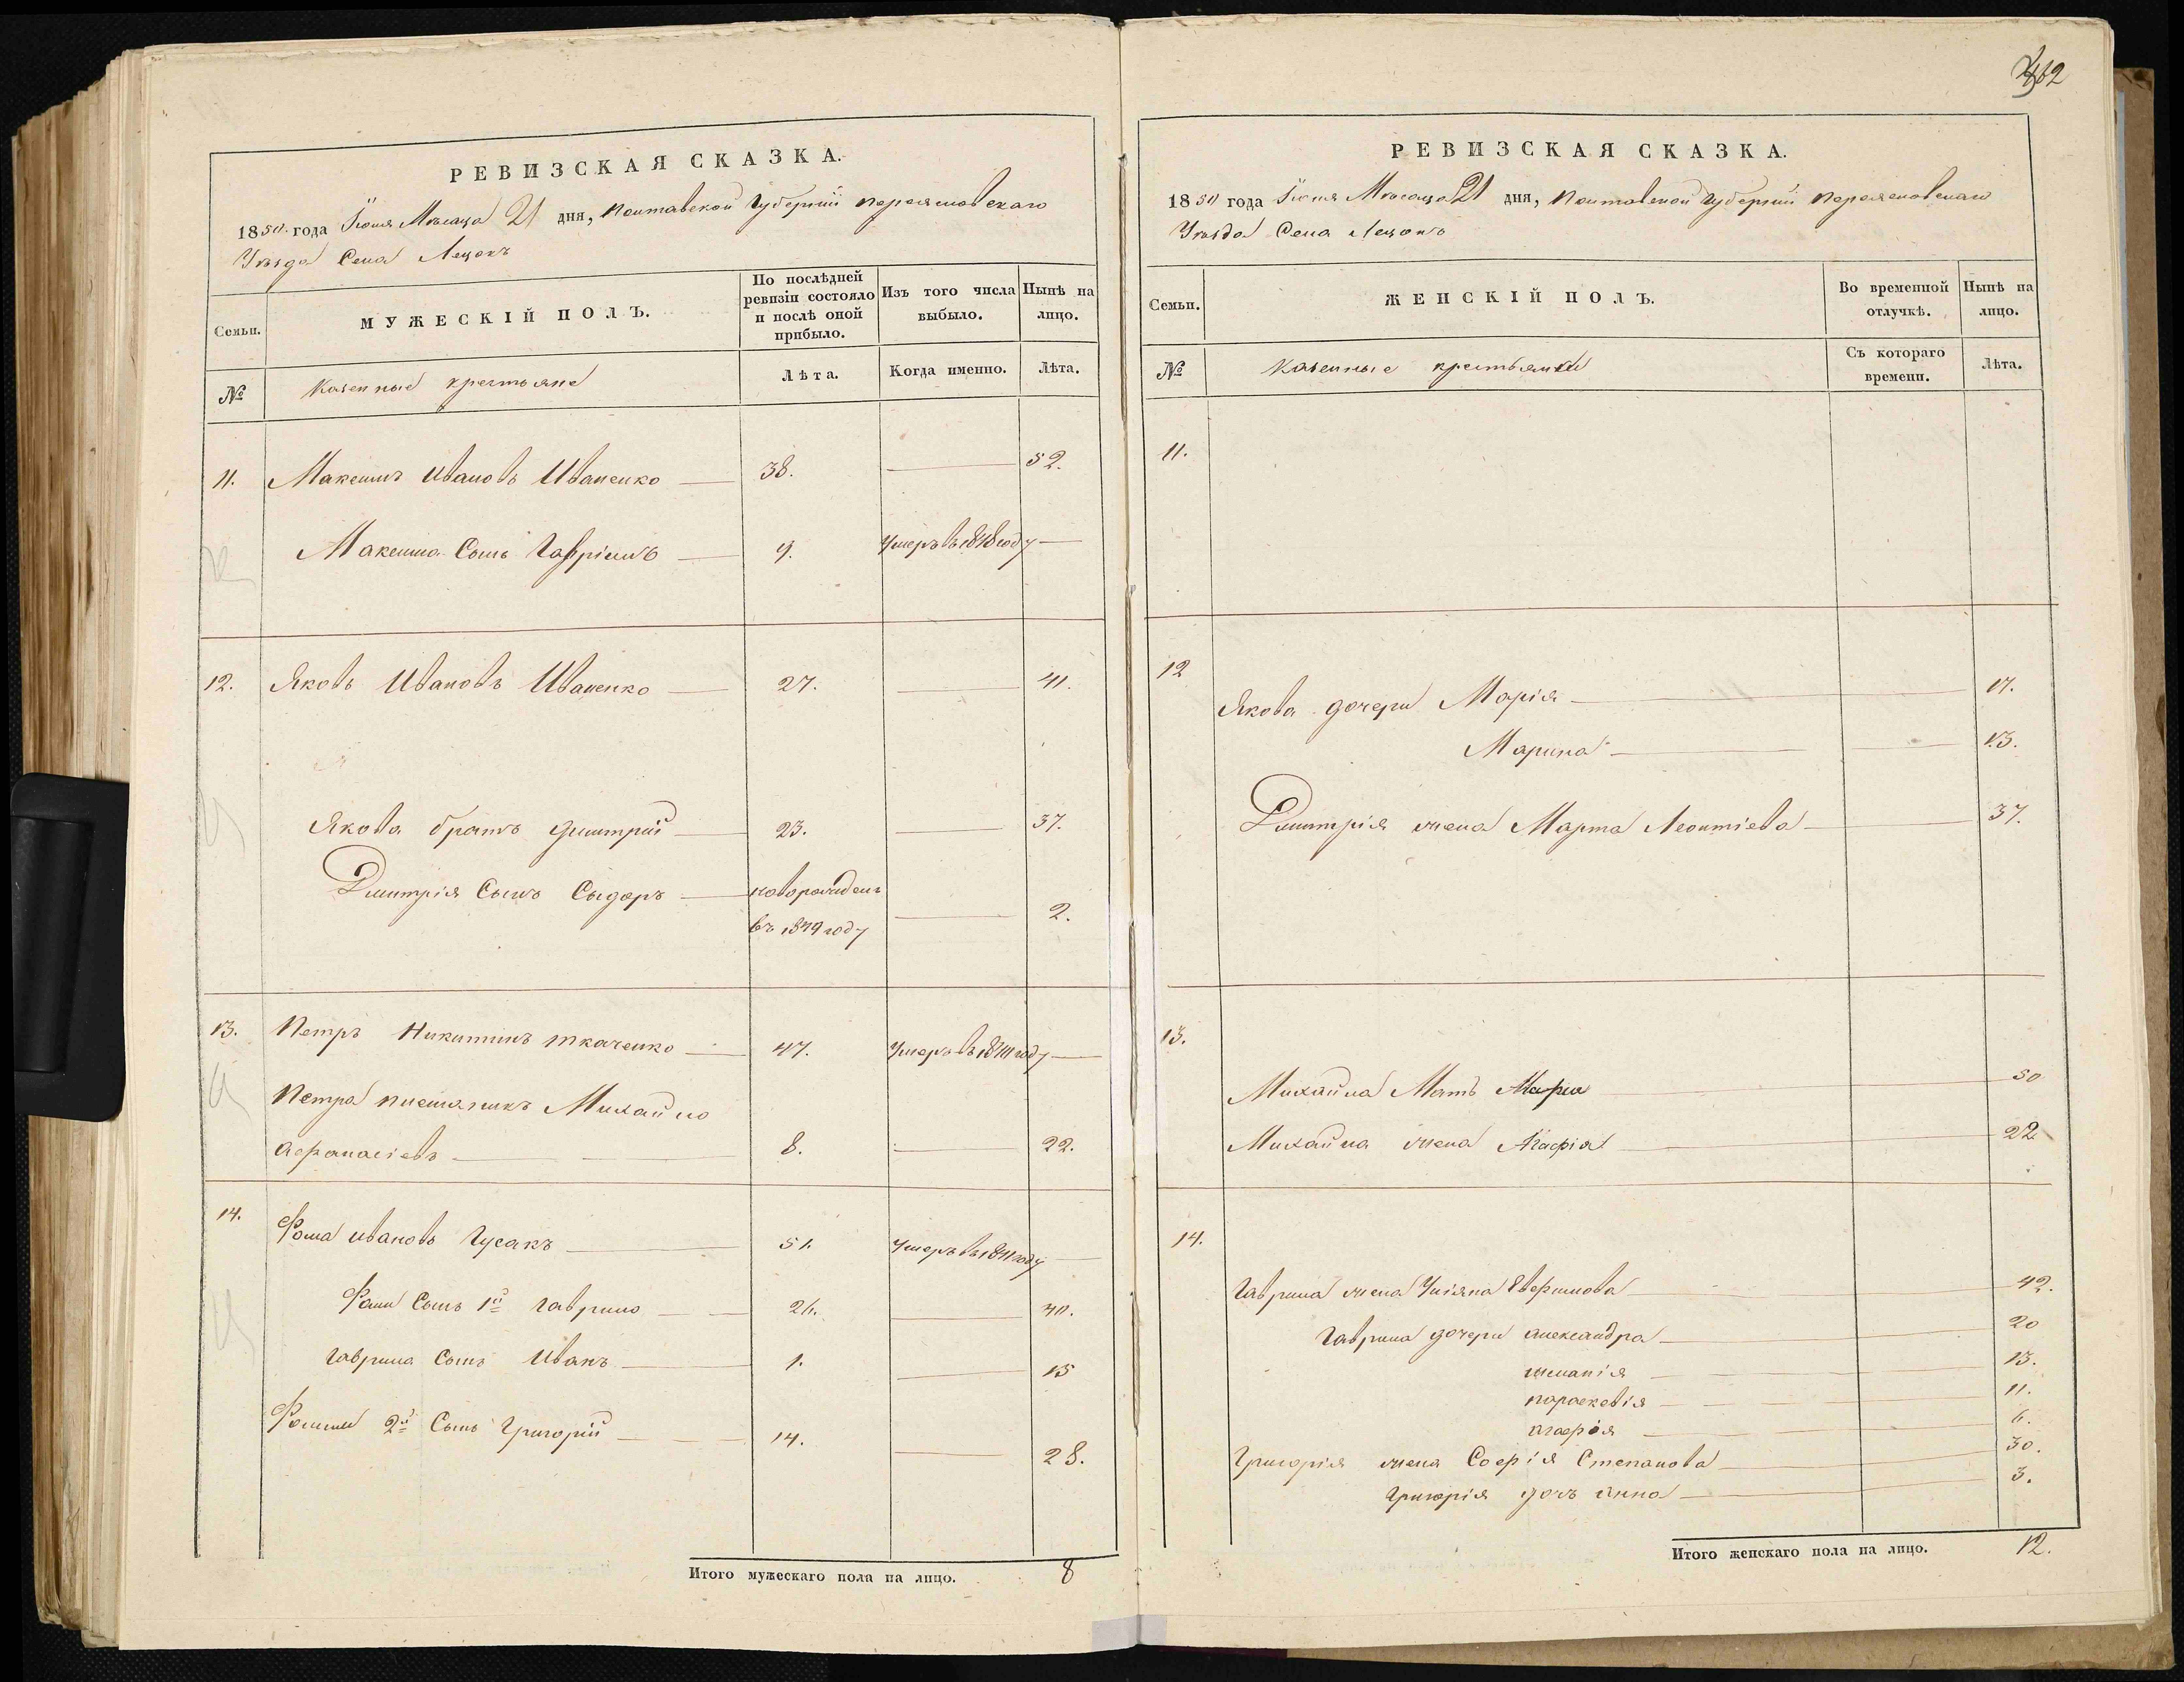 РЕВИЗСКАЯ СКАЗКА.
1850 года Іюня Мѣсяца 21 дня, Полтавской Губерніи Переяславскаго
Уѣзда Села Лецокъ
Семьи.
МУЖЕСКІЙ ПОЛЪ.
По послѣдней
ревизіи состояло
и послѣ оной
прибыло.
Изъ того числа
выбыло.
Нынѣ на
лицо.
№
Казенные крестьяне
Лѣта.
Когда именно.
Лѣта.
11. Максимъ Ивановъ Иваненко 38. 52.
Максима Сынъ Гавріилъ 9. Умеръ въ 1848 году
12. Яковъ Ивановъ Иваненко 27. 41.
Якова братъ Дмитрій 23. 37.
Дмитрія Сынъ Сыдоръ новорожденъ
въ 1849 году 2.
13. Петръ Никитинъ Ткаченко 47. Умеръ въ году
Петра племяникъ Михайло
Афанасіевъ 8. 22.
14. Фома Ивановъ Гусакъ 51. Умеръ въ 1841 году
Фомы Сынъ 1й Гаврило 26. 40.
Гаврила Сынъ Иванъ 1. 15
Фомы 2й Сынъ Григорій 14. 28.
Итого мужескаго пола на лицо. 8
362
РЕВИЗСКАЯ СКАЗКА.
1850 года Іюня Мѣсяца 21 дня, Полтавской Губерніи Переяславскаго
Уѣзда Села Лецокъ
Семьи.
ЖЕНСКІЙ ПОЛЪ.
Во временной
отлучкѣ.
Нынѣ на
лицо.
№
Казенные крестьянки
Съ котораго
времени.
Лѣта.
11.
12
Якова дочери Марія 17.
Марина 13.
Дмитрія жена Марта Леонтіева 37.
13.
Михайла Мать Марія 50
Михайла жена Агафія 22
14.
Гаврила жена Уліяна 42.
Гаврила дочери Александра 20
13.
Параскевія 11.
Агафія 6.
Григорія жена Софія Степанова 30.
Григорія дочь Анна 3.
Итого женскаго пола на лицо. 12.